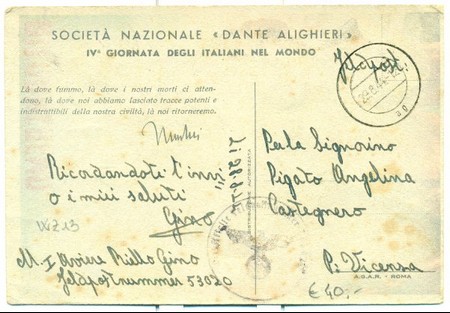 SOCIETÀ NAZIONALE «DANTE ALIGHIERI»
IVª GIORNATA DEGLI ITALIANI NEL MONDO
Là dove fummo, là dove i nostri morti ci atten-
dono, là dove noi abbiamo lasciato tracce potenti e
indistruttibili della nostra civiltà, là noi ritorneremo.
Feldpost.
Ricordandoti t'invi
o i miei saluti
Gino
WZ 13
M. I Aviere Riello Gino
Feldpostnummer 53020
DISTRIBUZIONE AUTORIZZATA
Per la Signorina
Pigato Angelina
Castegnero
P. Vicenza
A.G.A.R. - ROMA
€ 40,-